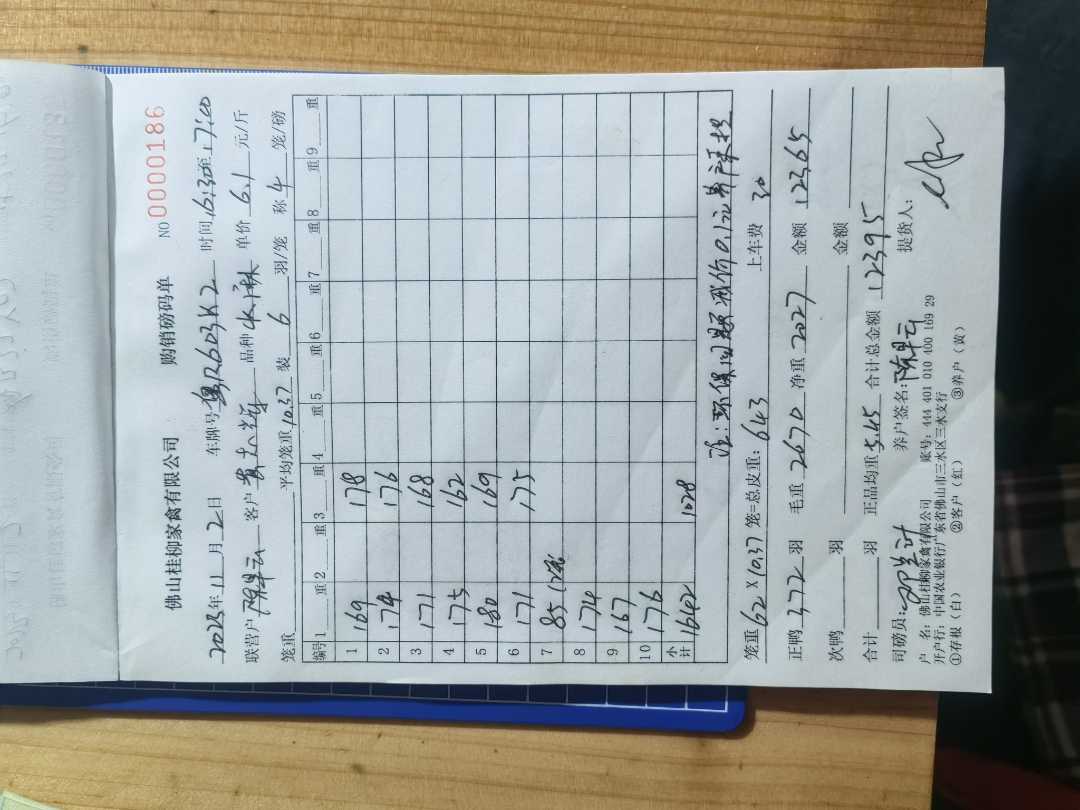 佛山桂柳家禽有限公司 购销磅码单 NO 0000186
2025年11月2日 车牌号 粤R6D3K2 时间 16:30至17:00
联营户 陈早云 客户 品种 单价 6.1 元/斤
笼重 平均笼重 10.37 装 6 羽/笼 称 4 笼/磅
编号 1 重 2 重 3 重 4 重 5 重 6 重 7 重 8 重 9 重
1 169 178
2 174 176
3 171 168
4 175 162
5 180 169
6 171 175
7 85 (2笼)
8 174
9 167
10 176
小计 1642 1028
注:环保问题减价0.1元
笼重 62 × 10.37 笼=总皮重: 643 上车费 30
正鸭 372 羽 毛重 2670 净重 2027 金额 12365
次鸭 羽 金额
合计 羽 正品均重 5.45 合计总金额 12395
司磅员: 养户签名: 陈早云 提货人:
户 名: 佛山桂柳家禽有限公司 账号: 444 401 010 400 169 29
开户行: 中国农业银行广东省佛山市三水区三水支行
①存根(白) ②客户(红) ③养户(黄)